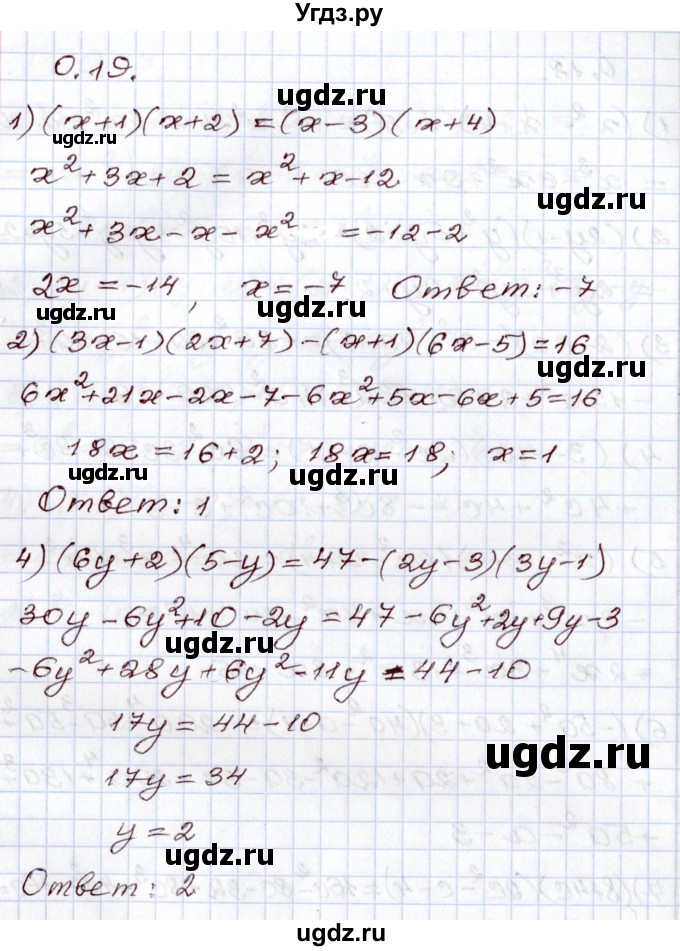 Угдз.ру
0.19.
1) (x+1)(x+2) = (x-3)(x+4)
x²+3x+2 = x²+x-12
x²+3x-x-x² =-12-2
2x = -14, x = -7 Ответ: -7
2) (3x-1)(2x+7)-(x+1)(6x-5)=16
6x²+21x-2x-7-6x²+5x-6x+5=16
18x = 16+2; 18x = 18; x = 1
Ответ: 1
4) (6y+2)(5-y)=47-(2y-3)(3y-1)
30y-6y²+10-2y=47-6y²+2y+9y-3
-6y²+28y+6y²-11y = 44-10
17y = 44-10
17y = 34
y = 2
Ответ: 2
ugdz.ru
ugdz.ru
ugdz.ru
ugdz.ru
ugdz.ru
ugdz.ru
ugdz.ru
ugdz.ru
ugdz.ru
ugdz.ru
ugdz.ru
ugdz.ru
ugdz.ru
ugdz.ru